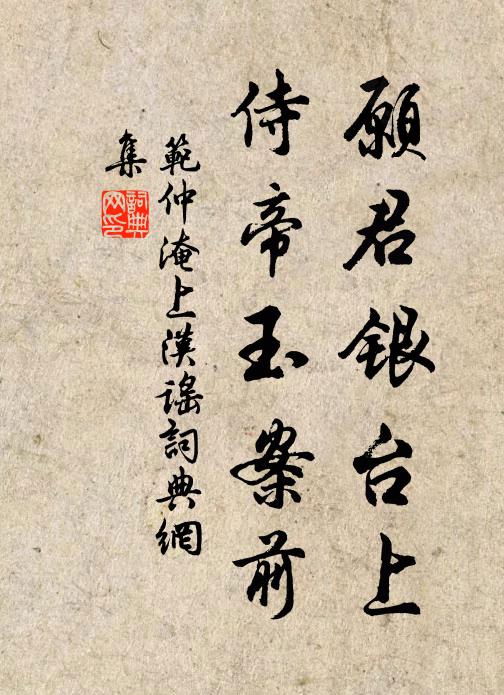 願君银台上
侍帝玉案前
範仲淹上漢謠詞典網
集
詞典
网印